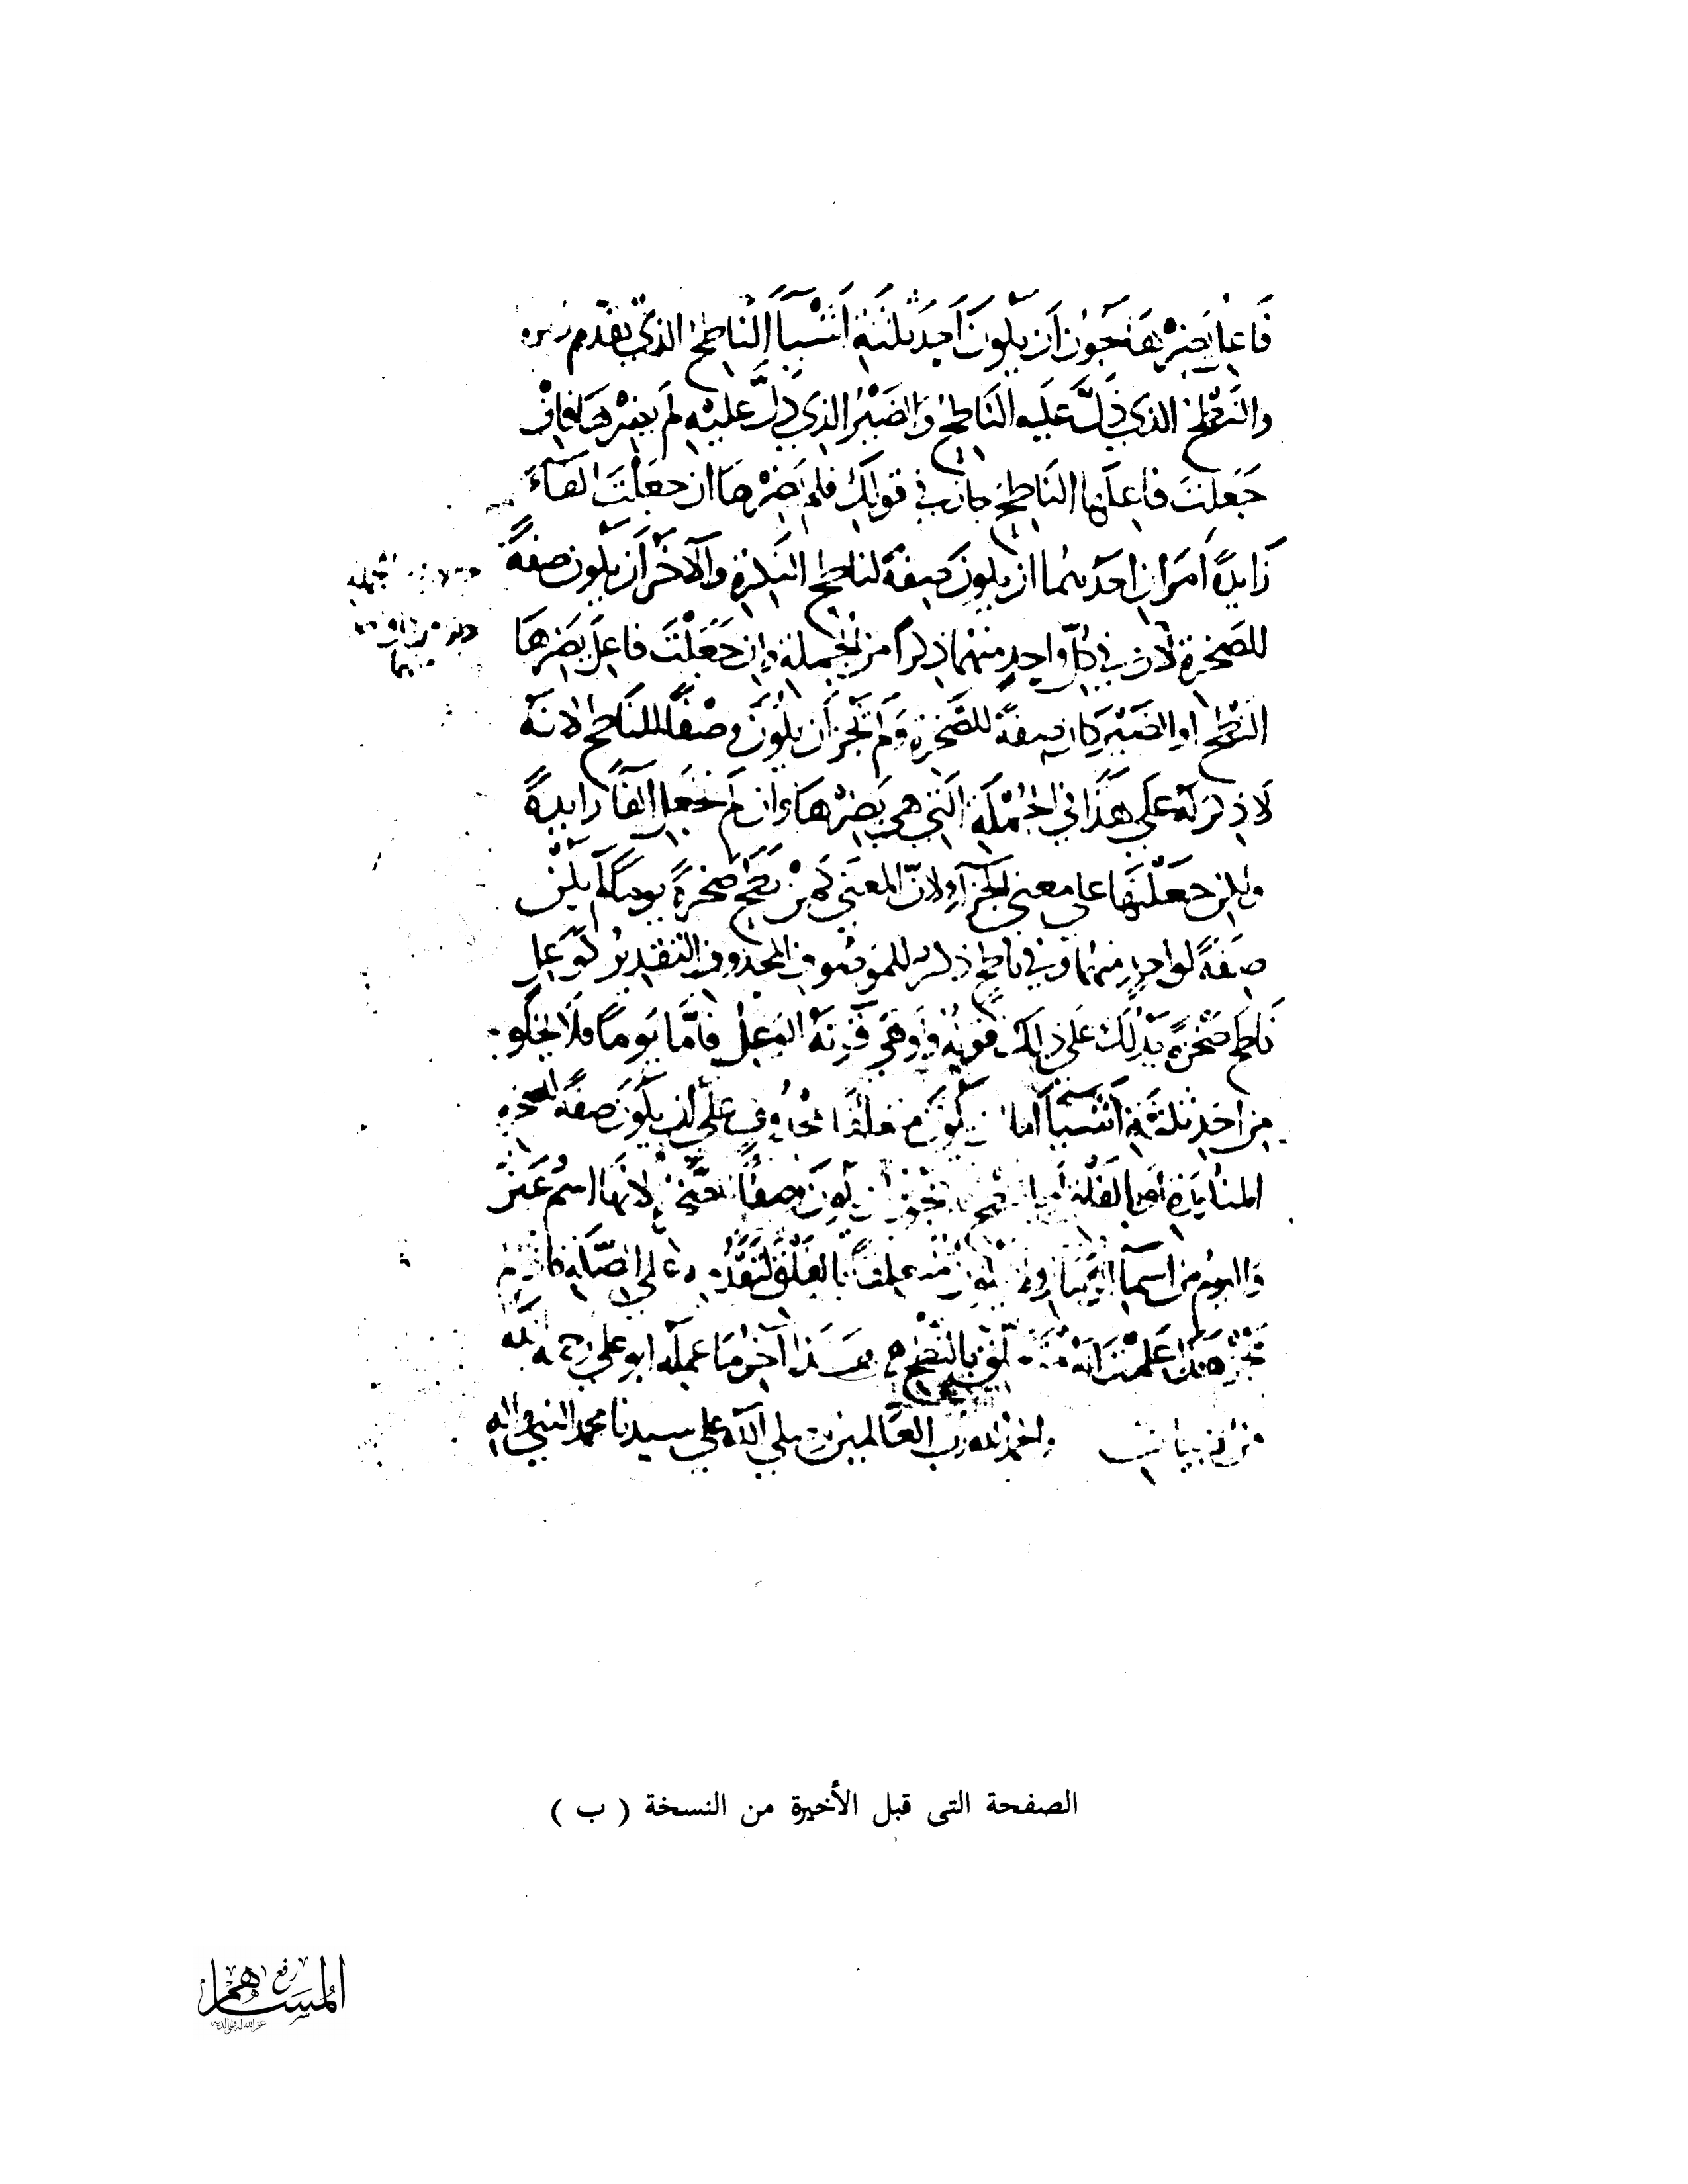 فاعل يضرها يجوز أن يكون أحد ثلثة أشيآء الناطح الذي تقدم ذكره
والنطح الذي دلّ عليه الناطح والضير الذي دلّ عليه لم يضرها فإن
جعلت فاعلها الناطح جاز في قولك فلم يضرها ان جعلت الفاء
زايدة أمران احدهما ان يكون صفة لناطح النكرة والآخر أن يكون صفة
للصخرة لأن في كل واحد منهما ذكرا من الجملة وإن جعلت فاعل يضرها
النطح او الضير كان صفة للصخرة ولم يجز أن يكون وصفا للناطح لانه
لا ذكر له على هذا في الجملة التي هي يضرها وان لم تجعل الفآ زايدة
ولكن جعلتها على معنى الجزآء لانّ المعنى كمن نطح صخرة يوما لم يكن
صفة لواحد منهما وفي ناطح ذكر للموصوف المحذوف التقدير كوعل
ناطح صخرة يدلك على ذلك قوله وأوهى قرنه الوعل فأمّا يوما فلا يخلو
من احد ثلثة أشيآ اما ان يكون متعلقا بمحذوف على ان يكون صفة للصخرة
أو بالفلق أو بالنطح لا يجوز ان يكون وصفا للصخرة لانها اسم عين
واليوم من اسمآ الزمان ولا يكون متعلقا بالفلق لتقدمه على الصلة فاذا لم
يجز هذا علمت انه متعلق بالنطح هذا آخر ما عمله ابو علي رحمه الله
من الابيات والحمد لله رب العالمين وصلى الله على سيدنا محمد النبي وآله
الصفحة التى قبل الأخيرة من النسخة ( ب )
رفع
المساهم
غفر الله له ولوالديه